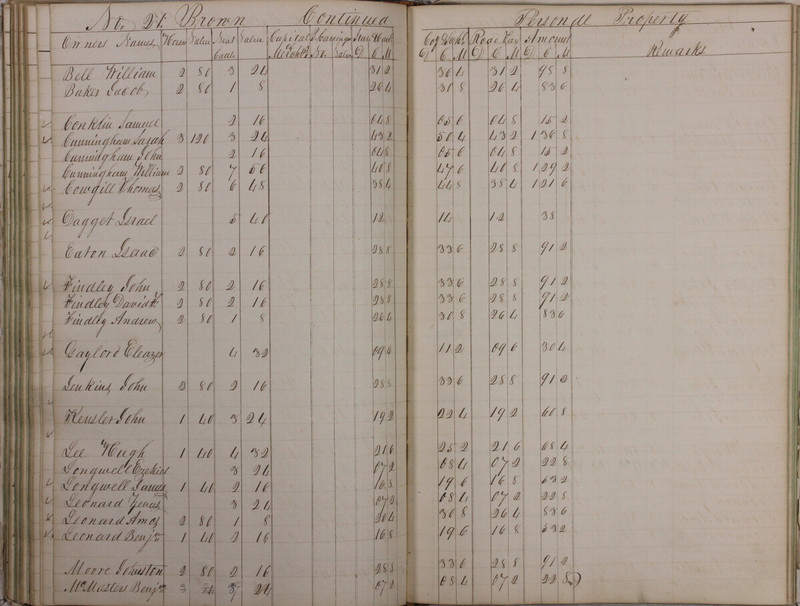 No. 21. Brown Continued Personal Property
Owners Names Horses Value Neat Cattle Value Capital Carriages Value State Coty Road Tax Amount Remarks
Bell William 2 80 3 24 31 2 36 4 31 2 98 8
Baker Jacob 2 80 1 8 26 4 30 8 26 4 83 6
Conklin Samuel 2 16 04 8 05 6 04 8 15 2
Cunningham Sarah 3 120 3 24 43 2 50 4 43 2 1 36 8
Cunningham John 2 16 04 8 05 6 04 8 15 2
Cunningham William 2 80 7 56 40 8 47 6 40 8 1 29 2
Cowgill Thomas 2 80 6 48 38 4 44 8 38 4 1 21 6
Dagget Israel 5 40 12 14 12 38
Eaton Isaac 2 80 2 16 28 8 33 6 28 8 91 2
Findley John 2 80 2 16 28 8 33 6 28 8 91 2
Findley David 2 80 2 16 28 8 33 6 28 8 91 2
Findley Andrew 2 80 1 8 26 4 30 8 26 4 83 6
Gaylord Eleazer 4 32 09 6 11 2 09 6 30 4
Jenkins John 2 80 2 16 28 8 33 6 28 8 91 2
Kensler John 1 40 3 24 19 2 22 4 19 2 60 8
Lee Hugh 1 40 4 32 21 6 25 2 21 6 68 4
Longwell Ezekiel 3 24 07 2 08 4 07 2 22 8
Longwell James 1 40 2 16 16 8 19 6 16 8 53 2
Leonard 3 24 07 2 08 4 07 2 22 8
Leonard Amos 2 80 1 8 26 4 30 8 26 4 83 6
Leonard Benjn 1 40 2 16 16 8 19 6 16 8 53 2
Moore Johnston 2 80 2 16 28 8 33 6 28 8 91 2
McMasters Benjn 3 24 07 2 08 4 07 2 22 8